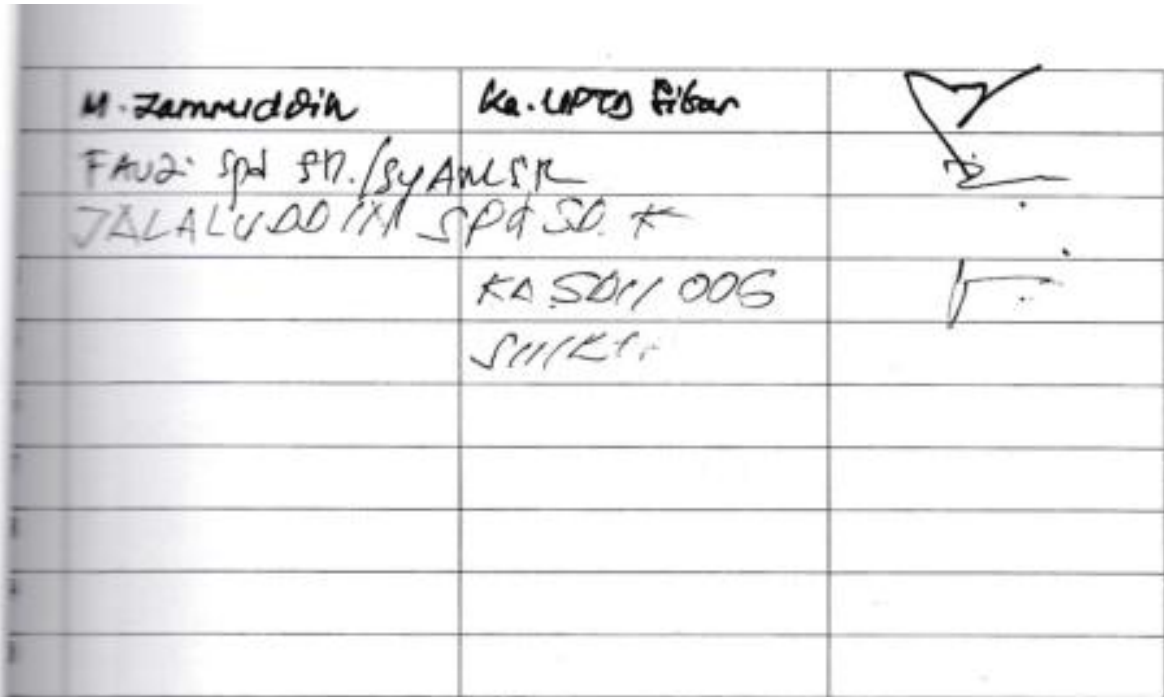 M. Zamruddin Ka. UPTD
FAUZi Spd SD./SYAMSR
JALALUDDIN SPd SD. K
KA SDN 006